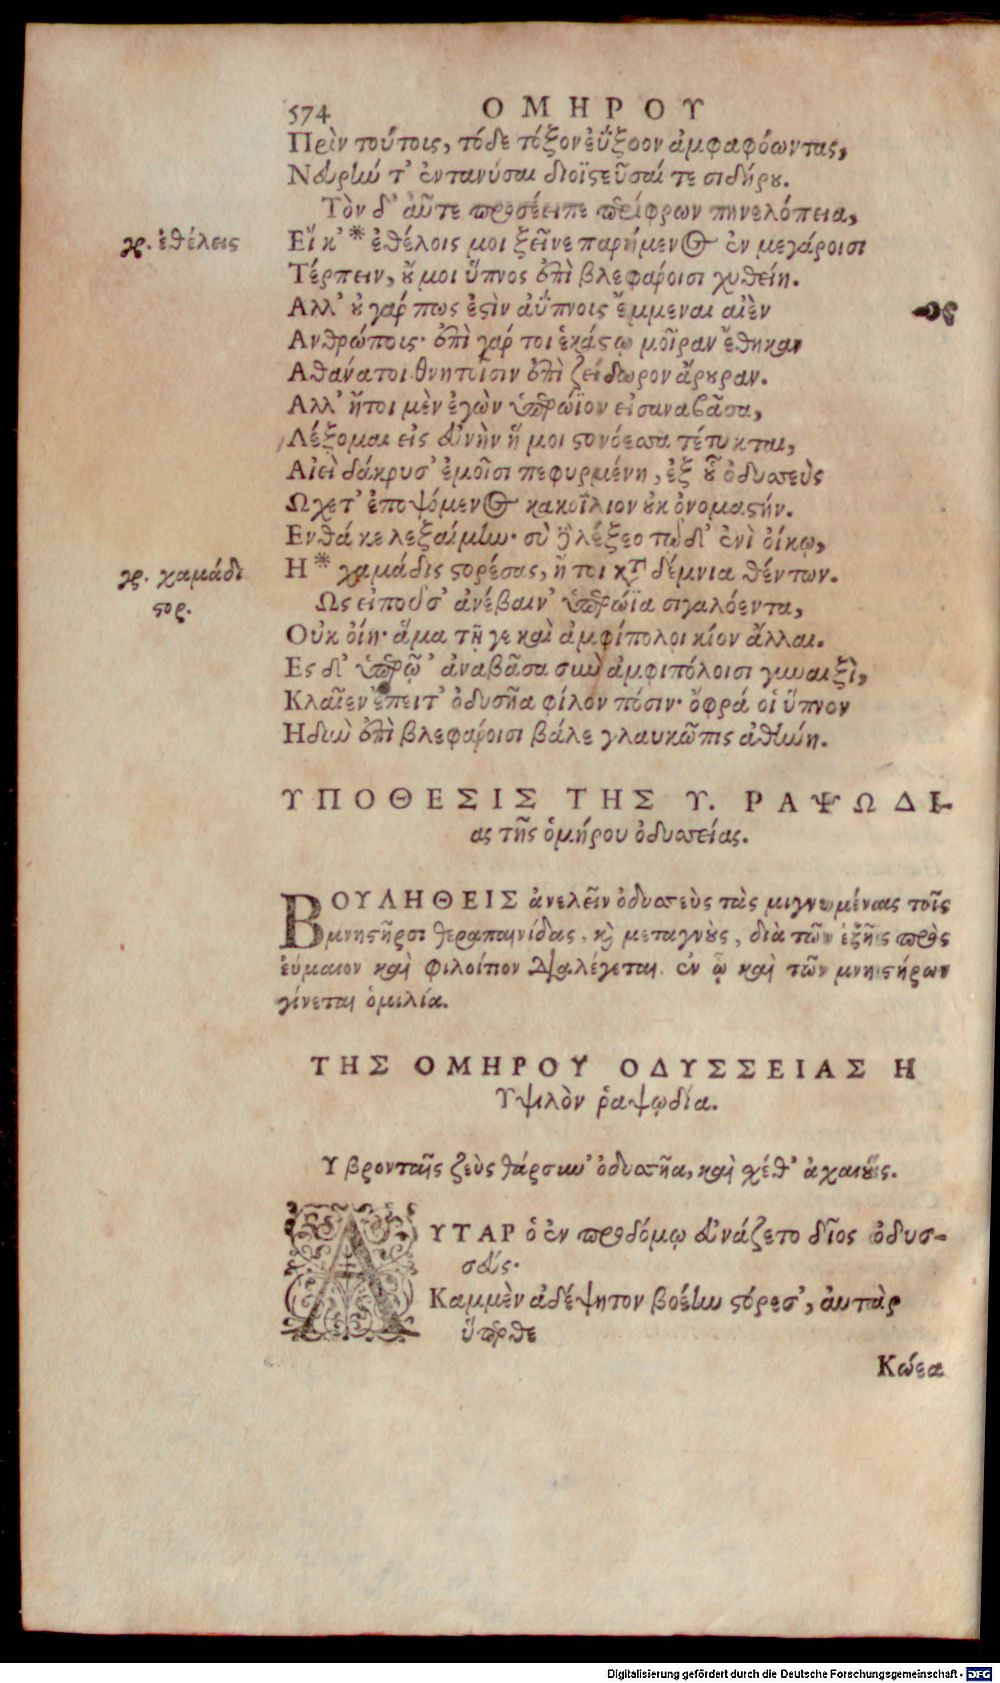 574 ΟΜΗΡΟΥ
Πρὶν τούτοις, τόδε τόξον ἐΰξοον ἀμφαφόωντας,
Νευρὴν τ' ἐντανύσαι διοϊστεῦσαί τε σιδήρου.
Τὸν δ' αὖτε προσέειπε περίφρων πηνελόπεια,
γρ. ἐθέλεις
Εἴ κ' * ἐθέλοις μοι ξεῖνε παρήμενος ἐν μεγάροισι
Τέρπειν, οὔ μοι ὕπνος ἐπὶ βλεφάροισι χυθείη.
Αλλ' οὐ γάρ πως ἐστὶν ἀΰπνοις ἔμμεναι αἰὲν
Ανθρώποις· ἐπὶ γάρ τοι ἑκάστῳ μοῖραν ἔθηκαν
Αθάνατοι θνητοῖσιν ἐπὶ ζείδωρον ἄρουραν.
Αλλ' ἤτοι μὲν ἐγὼν ὑπερώϊον εἰσαναβᾶσα,
Λέξομαι εἰς εὐνὴν ἥ μοι στονόεσσα τέτυκται,
Αἰεὶ δάκρυσ' ἐμοῖσι πεφυρμένη, ἐξ οὗ ὀδυσσεὺς
Ωχετ' ἐποψόμενος κακοΐλιον οὐκ ὀνομαστήν.
Ενθά κε λεξαίμην· σὺ δὲ λέξεο τῷδ' ἐνὶ οἴκῳ,
γρ. χαμάδι
στορ.
Η * χαμάδις στορέσας, ἤ τοι κατὰ δέμνια θέντων.
Ως εἰποῦσ' ἀνέβαιν' ὑπερώϊα σιγαλόεντα,
Οὐκ οἴη· ἅμα τῇ γε καὶ ἀμφίπολοι κίον ἄλλαι.
Ες δ' ὑπερῷ' ἀναβᾶσα σὺν ἀμφιπόλοισι γυναιξὶ,
Κλαῖεν ἔπειτ' ὀδυσῆα φίλον πόσιν· ὄφρά οἱ ὕπνον
Ηδὺν ἐπὶ βλεφάροισι βάλε γλαυκῶπις ἀθήνη.
ΥΠΟΘΕΣΙΣ ΤΗΣ Υ. ΡΑΨΩΔΙ-
ας τῆς ὁμήρου ὀδυσσείας.
ΒΟΥΛΗΘΕΙΣ ἀνελεῖν ὀδυσσεὺς τὰς μιγνυμένας τοῖς
μνηστῆρσι θεραπαινίδας, καὶ μεταγνοὺς, διὰ τῶν ἑξῆς πρὸς
εὔμαιον καὶ φιλοίτιον διαλέγεται. ἐν ᾧ καὶ τῶν μνηστήρων
γίνεται ὁμιλία.
ΤΗΣ ΟΜΗΡΟΥ ΟΔΥΣΣΕΙΑΣ Η
Υψιλὸν ῥαψῳδία.
Υ βρονταῖς ζεὺς θάρσυν' ὀδυσσῆα, καὶ χέθ' ἀχαιούς.
ΑΥΤΑΡ ὁ ἐν προδόμῳ εὐνάζετο δῖος ὀδυσ-
σεύς·
Καμμὲν ἀδέψητον βοέην στόρεσ', αὐτὰρ
ὕπερθε
Κώεα
Digitalisierung gefördert durch die Deutsche Forschungsgemeinschaft - DFG